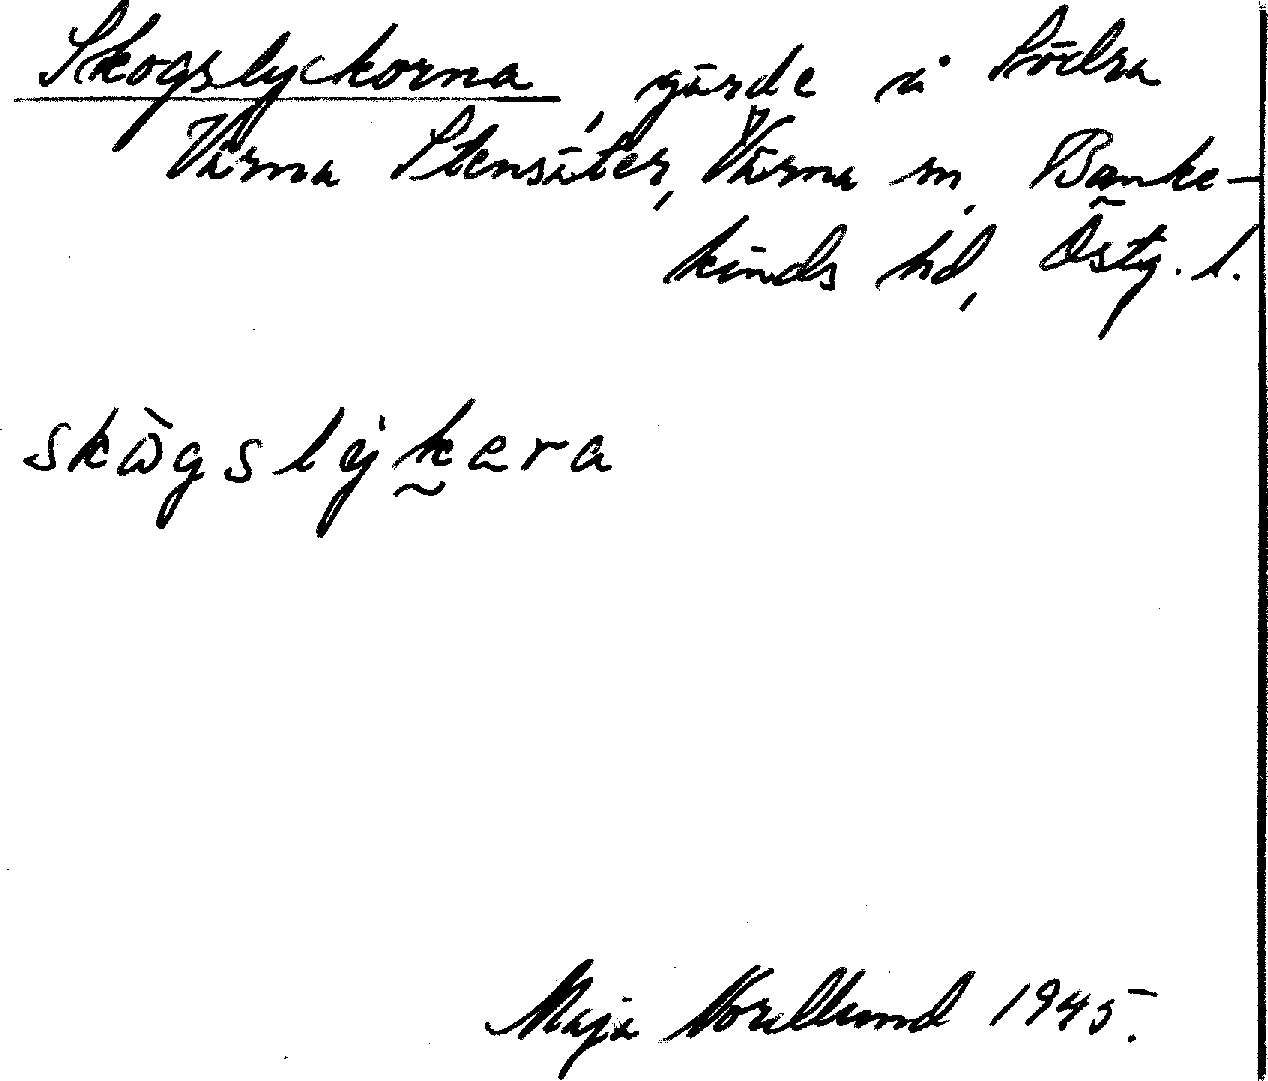 Skogslyckorna, gärde å Södra
Värna Stensäter, Värna sn, Banke-
kinds hd, Östg. l.
skògslýkera
Maja Nordlund 1945.